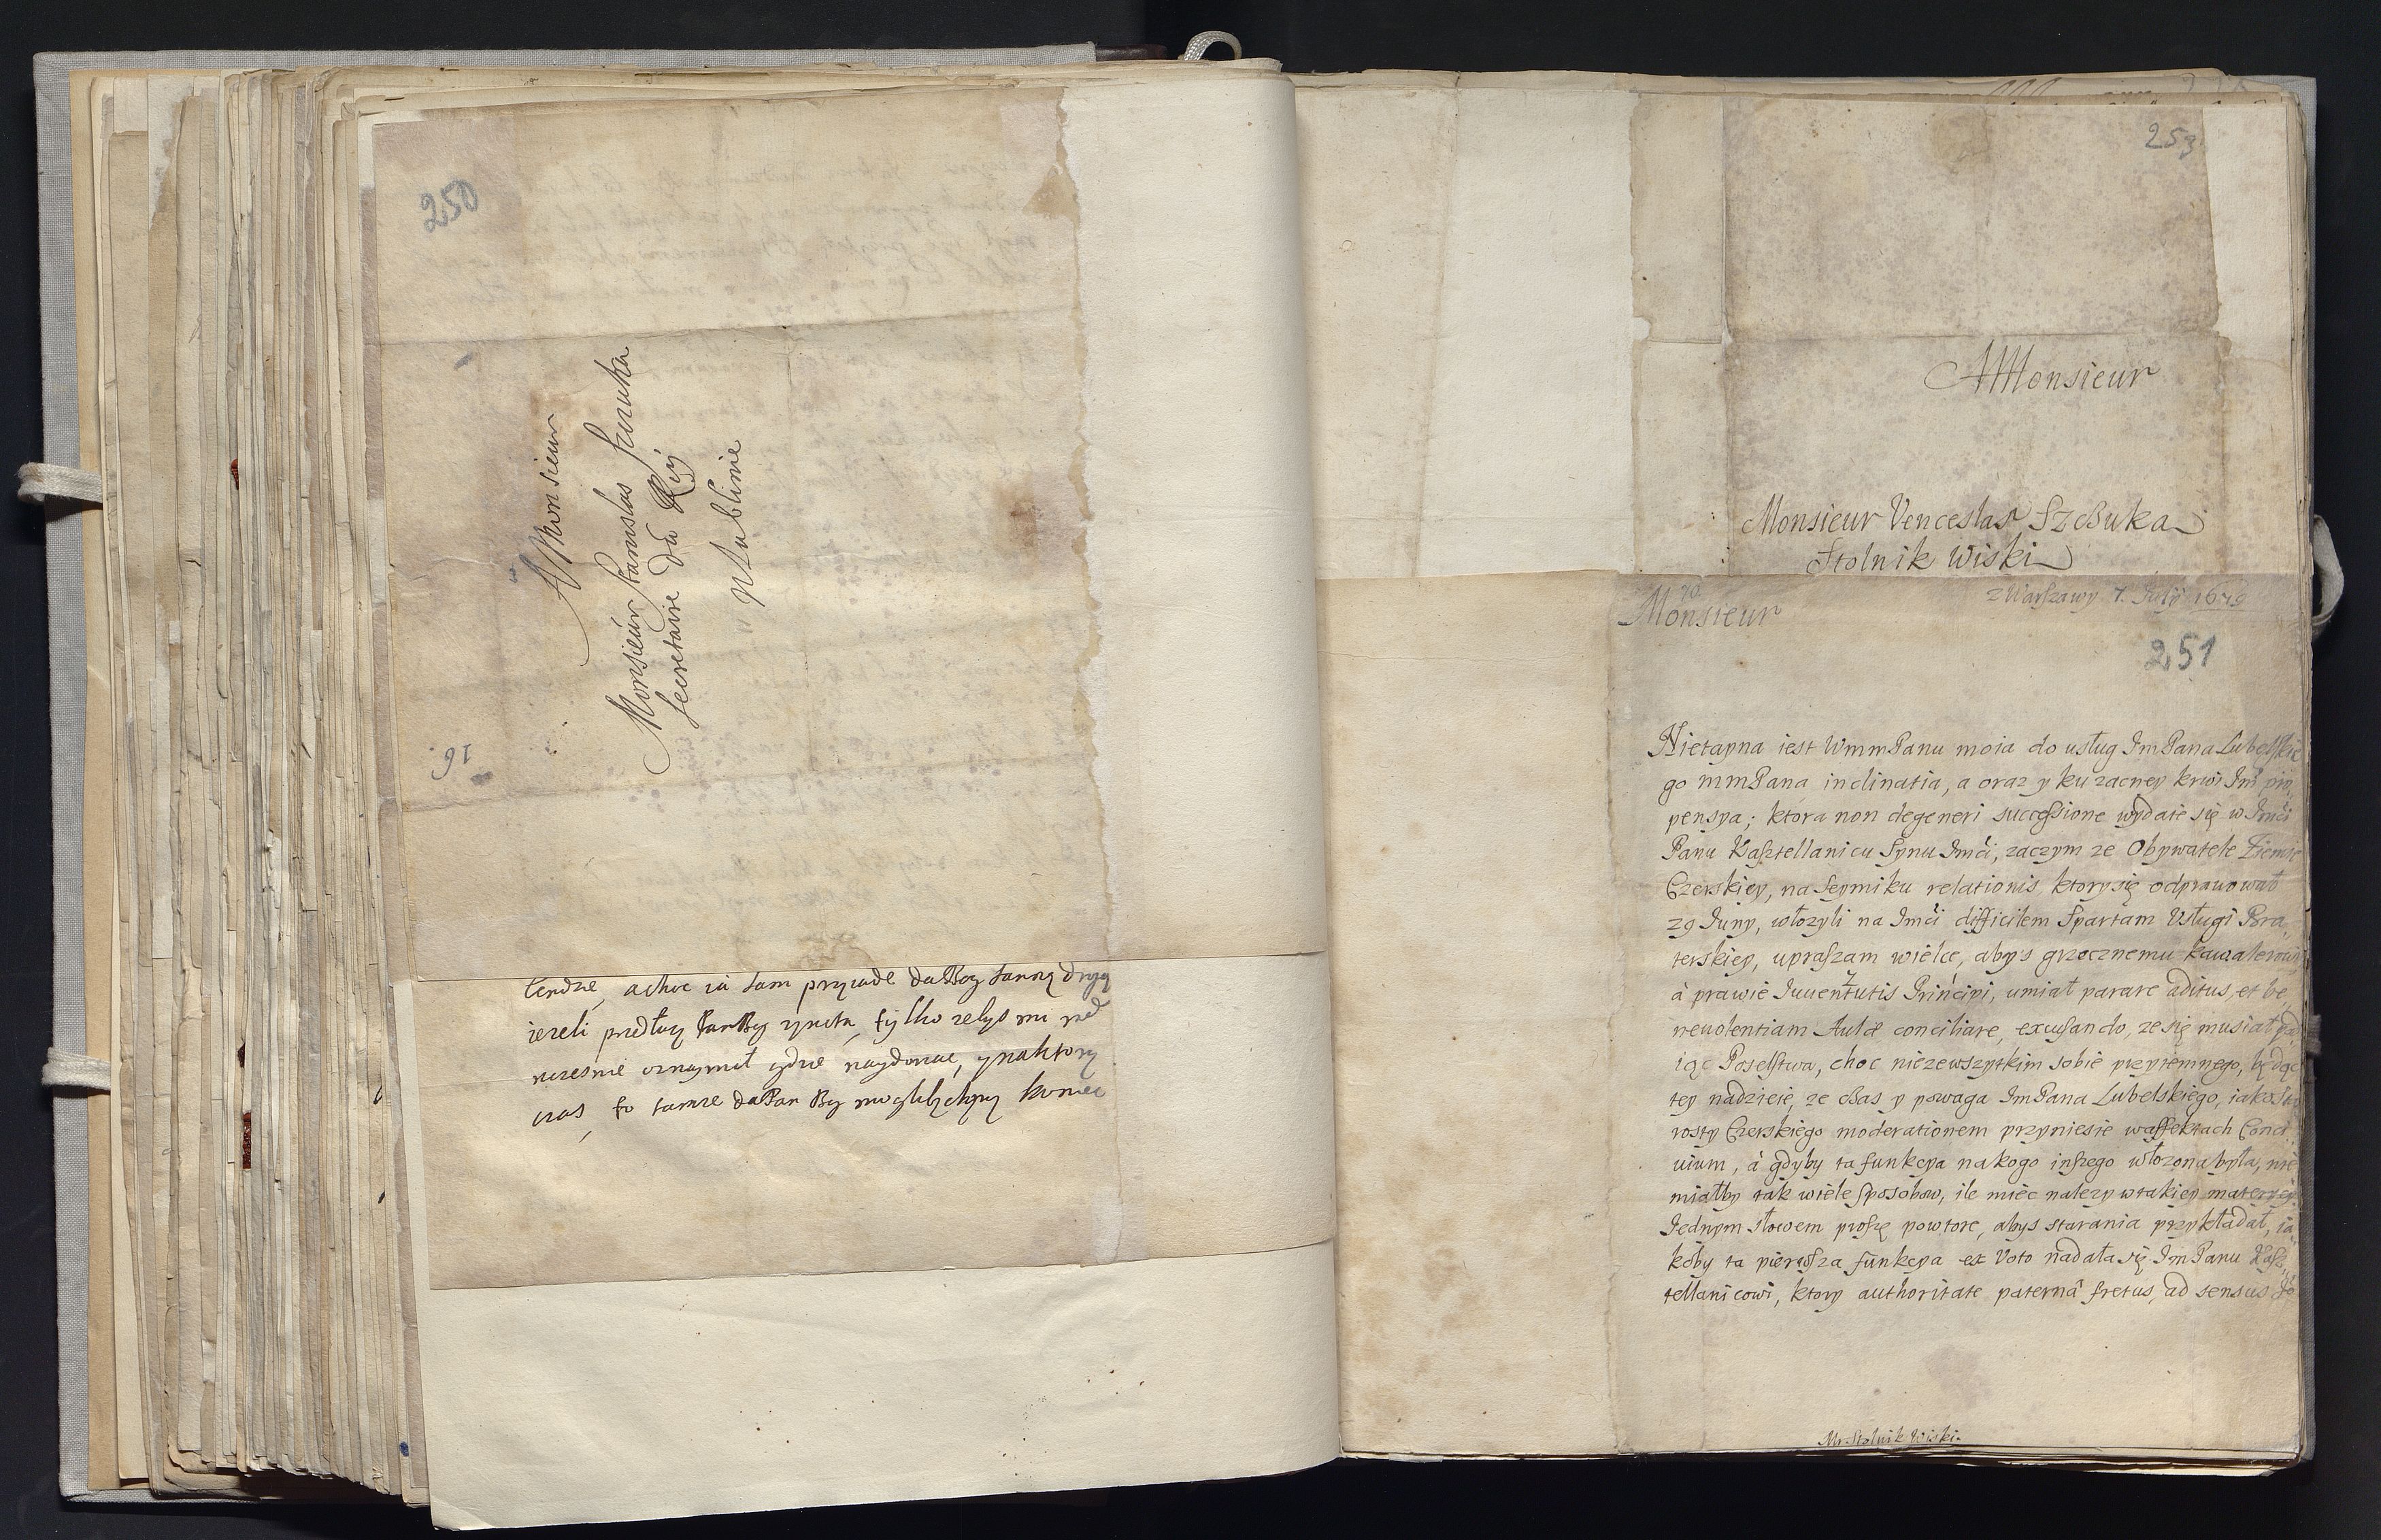 250
A Monsieur
Monsieur Stanislas Szczuka
Secretaire du Roy
w Lublinie
16
bendzie, a choc ia tam przyiade da Bog
iezeli predtuy PanBog zycia, tylko zebys mi
wczesnie oznaymił gdzie, y naktory
czas, to tamze da Pan Bog koniec
253
A Monsieur
Monsieur Venceslas Szczuka
Stolnik Wiski
70
Monsieur
z Warszawy 7. Julij 1679
251
Nietayna iest WmmPanu moia do usług JmPana Lubelskie
go mmPana inclinatia, a oraz y ku zacney krwi Jm pro,
pensya; ktora non degeneri successione wydaie się w Jmći
Panu Kasztellanicu Synu Jmći, zaczym ze Obywatele Ziemie
Czerskiey, na Seymiku relationis, ktory się odprawował
29 Juny, włozyli na Jmći difficilem Spartam Usługi Bra,
terskiey, upraszam wielce, abys grzecznemu kawalerowi
à prawie Juuentutis Principi, umiał parare aditus, et be,
neuolentiam Aulæ conciliare, excusando, ze się musiał pod
iąc Poselstwa, choc niezewszytkim sobie przyiemnego, będąc
tey nadzieie, ze czas y powaga JmPana Lubelskiego, iako Sta
rosty Czerskiego moderationem przyniesie waffektach Conci
uium, à gdyby ta funkcya na kogo inszego włozona była, nie
miałby tak wiele sposobow, ile miec nalezy w takiey materyey.
Jednym słowem proszę powtore, abys starania przykładał, ia,
koby ta pierwsza funkcya ex Voto nadała się JmPanu Kasz,
tellanicowi, ktory authoritate paternâ fretus, ad sensus
Mr Stolnik Wiski